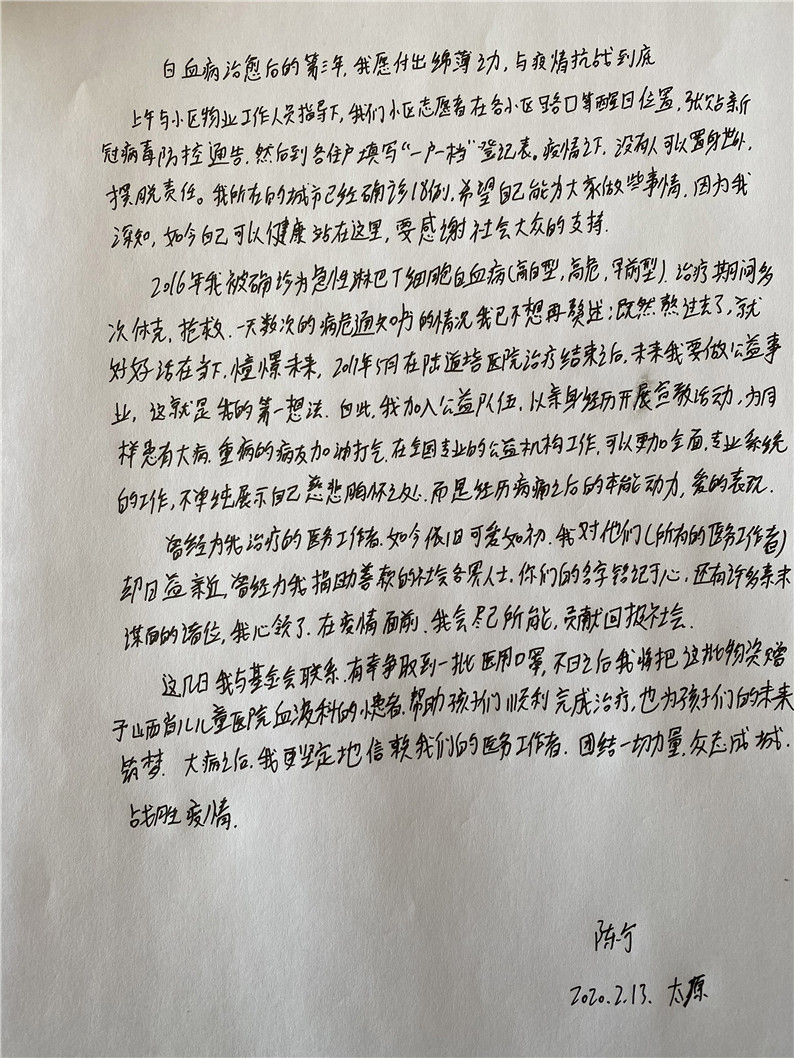 白血病治愈后的第三年,我愿付出绵薄之力,与疫情抗战到底
上午与小区物业工作人员指导下,我们小区志愿者在各小区路口等醒目位置,张贴新
冠病毒防控通告.然后到各住户填写“一户一档”登记表。疫情之下,没有人可以置身世外,
摆脱责任。我所在的城市已经确诊18例,希望自己能为大家做些事情.因为我
深知,如今自己可以健康站在这里,要感谢社会大众的支持.
2016年我被确诊为急性淋巴T细胞白血病(高白型,高危,早前型).治疗期间多
次休克,抢救.一天数次的病危通知书的情况我已不想再赘述;既然熬过去了,就
好好活在当下,憧憬未来,2017年5月在陆道培医院治疗结束之后,未来我要做公益事
业,这就是我的第一想法.因此,我加入公益队伍,以亲身经历开展宣教活动,为同
样患有大病.重病的病友加油打气.在全国专业的公益机构工作,可以更加全面.专业系统
的工作,不单纯展示自己慈悲胸怀之处.而是经历病痛之后的本能动力,爱的表现.
曾经为我治疗的医务工作者.如今依旧可爱如初.我对他们(所有的医务工作者)
却日益亲近,曾经为我捐助善款的社会各界人士.你们的名字铭记于心,还有许多素未
谋面的诸位,我心领了.在疫情面前.我会尽己所能,贡献回报社会.
这几日我与基金会联系.有幸争取到一批医用口罩,不日之后我将把这批物资赠
予山西省儿童医院血液科的小患者.帮助孩子们顺利完成治疗,也为孩子们的未来
筑梦. 大病之后.我更坚定地信赖我们的医务工作者.团结一切力量,众志成城.
战胜疫情.
陈
2020.2.13. 太原